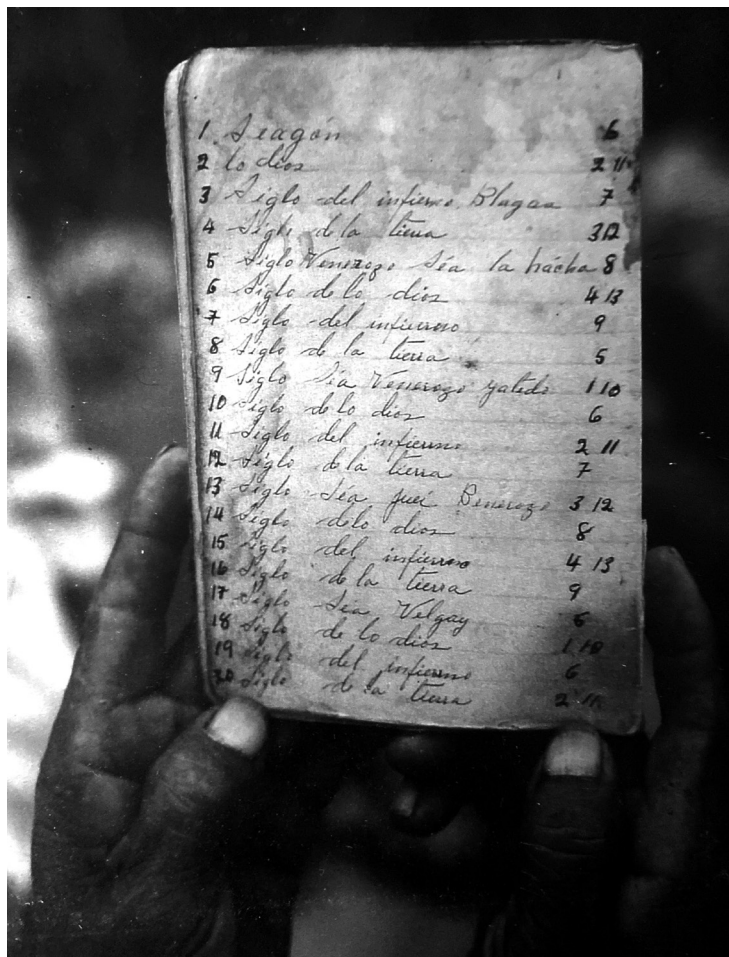 1 Seagón 6
2 lo dios 2 11
3 Siglo del infierno Blagaa 7
4 Siglo de la tierra 3 12
5 Siglo Venerozo Séa la hácha 8
6 Siglo de lo dios 4 13
7 Siglo del infierno 9
8 Siglo de la tierra 5
9 Siglo Séa Venerozo yatedo 1 10
10 Siglo de lo dios 6
11 Siglo del infierno 2 11
12 Siglo de la tierra 7
13 Siglo Séa fuei Benerozo 3 12
14 Siglo de lo dios 8
15 Siglo del infierno 4 13
16 Siglo de la tierra 9
17 Siglo Séa Velgay
18 Siglo de lo dios 1 10
19 Siglo del infierno 6
20 Siglo de la tierra 2 11